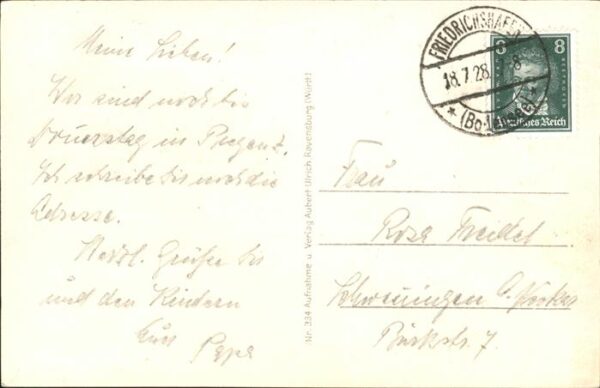 Meine Lieben!
Wir sind noch bis
Donnerstag in Bregenz.
Ich schreibe Dir noch die
Adresse.
Herzl. Grüße Dir
und den Kindern
Euer
Papa
Nr. 334 Aufnahme u. Verlag Aubert Ulrich Ravensburg (Württ.)
FRIEDRICHSHAFEN
18.7.28.
(Bodensee)
8 8
BEETHOVEN
Deutsches Reich
Frau
Rosa
Schwenningen a. Neckar
Bürkstr. 7